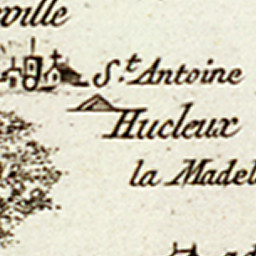 ville
S.t Antoine
Hucleux
la Madel